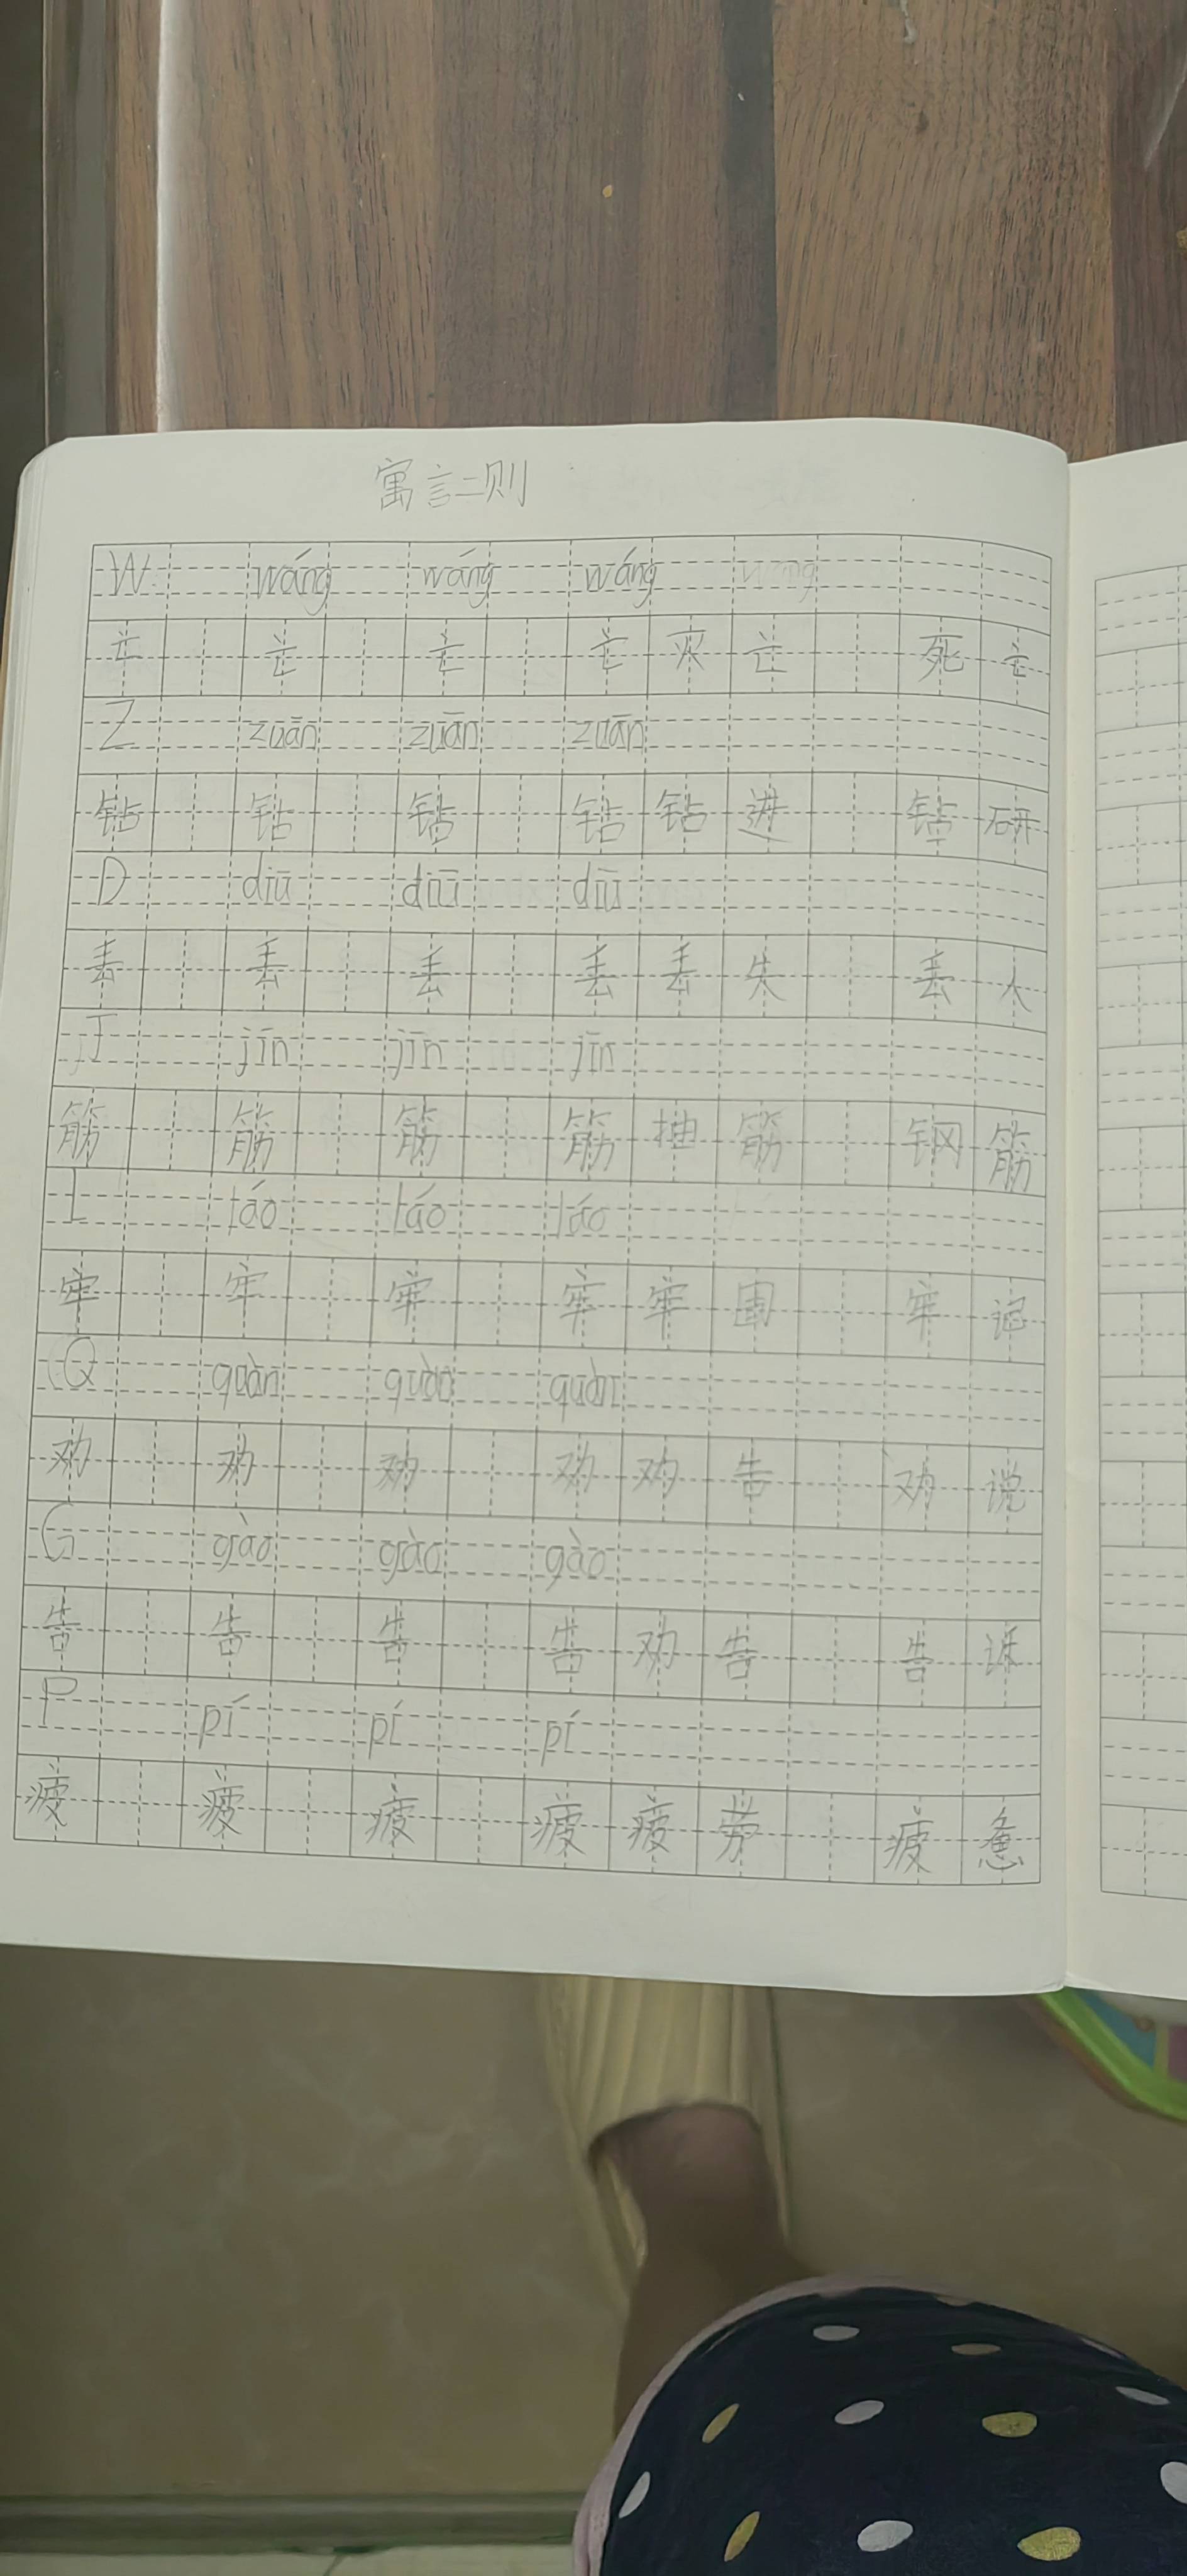 寓言二则
W wáng wáng wáng wáng
亡 亡 亡 亡 灭亡 死亡
Z zuān zuān zuān
钻 钻 钻 钻 钻进 钻研
D diū diū diū
丢 丢 丢 丢 丢失 丢人
J jīn jīn jīn
筋 筋 筋 筋 抽筋 钢筋
L láo láo láo
牢 牢 牢 牢 牢固 牢记
Q quàn quàn quàn
劝 劝 劝 劝 劝告 劝说
G gào gào gào
告 告 告 告 劝告 告诉
P pí pí pí
疲 疲 疲 疲 疲劳 疲惫